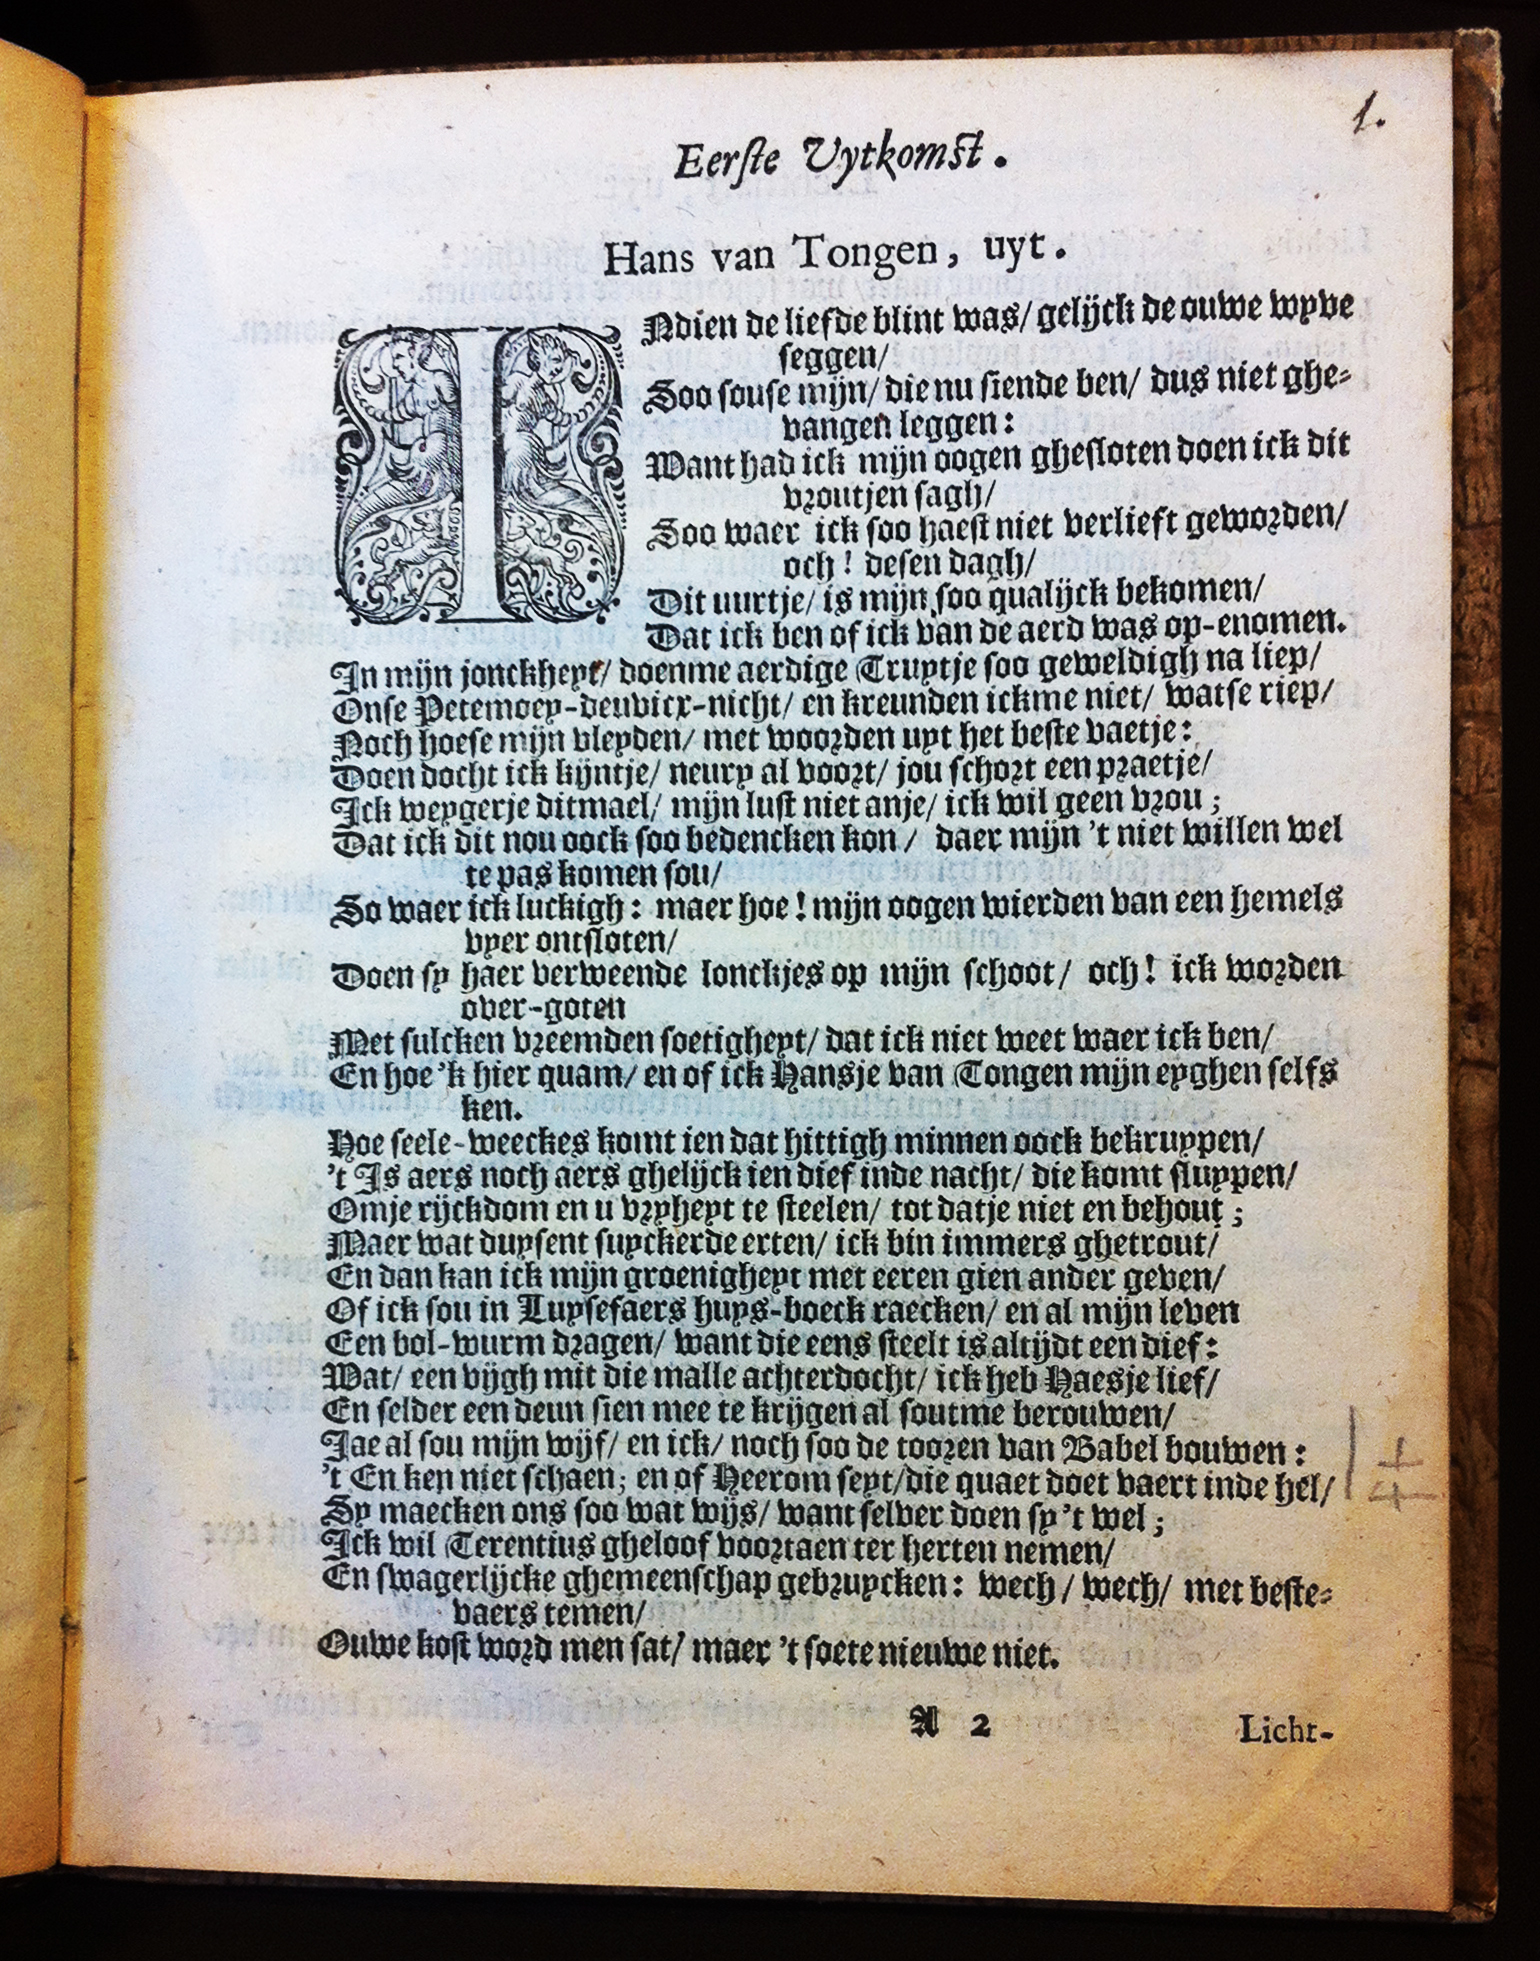 1.
Eerſte Uytkomſt.
Hans van Tongen, uyt.
INdien de liefde blint was/ gelijck de ouwe wyve
seggen/
Soo souse mijn/ die nu siende ben/ dus niet ghe-
vangen leggen:
Want had ick mijn oogen ghesloten doen ick dit
vroutjen sagh/
Soo waer ick soo haest niet verlieft geworden/
och! desen dagh/
Dit uurtje/ is mijn soo qualijck bekomen/
Dat ick ben of ick van de aerd was op-enomen.
In mijn jonckheyt/ doenme aerdige Truytje soo geweldigh na liep/
Onse Petemoey-deuvicx-nicht/ en kreunden ickme niet/ watse riep/
Noch hoese mijn vleyden/ met woorden uyt het beste vaetje:
Doen docht ick kijntje/ neury al voort/ jou schort een praetje/
Ick weygerje ditmael/ mijn lust niet anje/ ick wil geen vrou;
Dat ick dit nou oock soo bedencken kon/ daer mijn 't niet willen wel
te pas komen sou/
So waer ick luckigh: maer hoe! mijn oogen wierden van een hemels
vyer ontsloten/
Doen sy haer verweende lonckjes op mijn schoot/ och! ick worden
over-goten
Met sulcken vreemden soetigheyt/ dat ick niet weet waer ick ben/
En hoe 'k hier quam/ en of ick Hansje van Tongen mijn eyghen selfs
ken.
Hoe seele-weeckes komt ien dat hittigh minnen oock bekruypen/
't Is aers noch aers ghelijck ien dief inde nacht/ die komt sluypen/
Omje rijckdom en u vryheyt te steelen/ tot datje niet en behout;
Maer wat duysent suyckerde erten/ ick bin immers ghetrout/
En dan kan ick mijn groenigheyt met eeren gien ander geven/
Of ick sou in Luysefaers huys-boeck raecken/ en al mijn leven
Een bol-wurm dragen/ want die eens steelt is altijdt een dief:
Wat/ een vijgh mit die malle achterdocht/ ick heb Haesje lief/
En selder een deun sien mee te krijgen al soutme berouwen/
Jae al sou mijn wijf/ en ick/ noch soo de tooren van Babel bouwen:
't En ken niet schaen; en of Heerom seyt/ die quaet doet vaert inde hel/
Sy maecken ons soo wat wijs/ want selver doen sy 't wel;
Ick wil Terentius gheloof voortaen ter herten nemen/
En swagerlijcke ghemeenschap gebruycken: wech/ wech/ met beste-
vaers temen/
Ouwe kost word men sat/ maer 't soete nieuwe niet.
A 2
Licht-